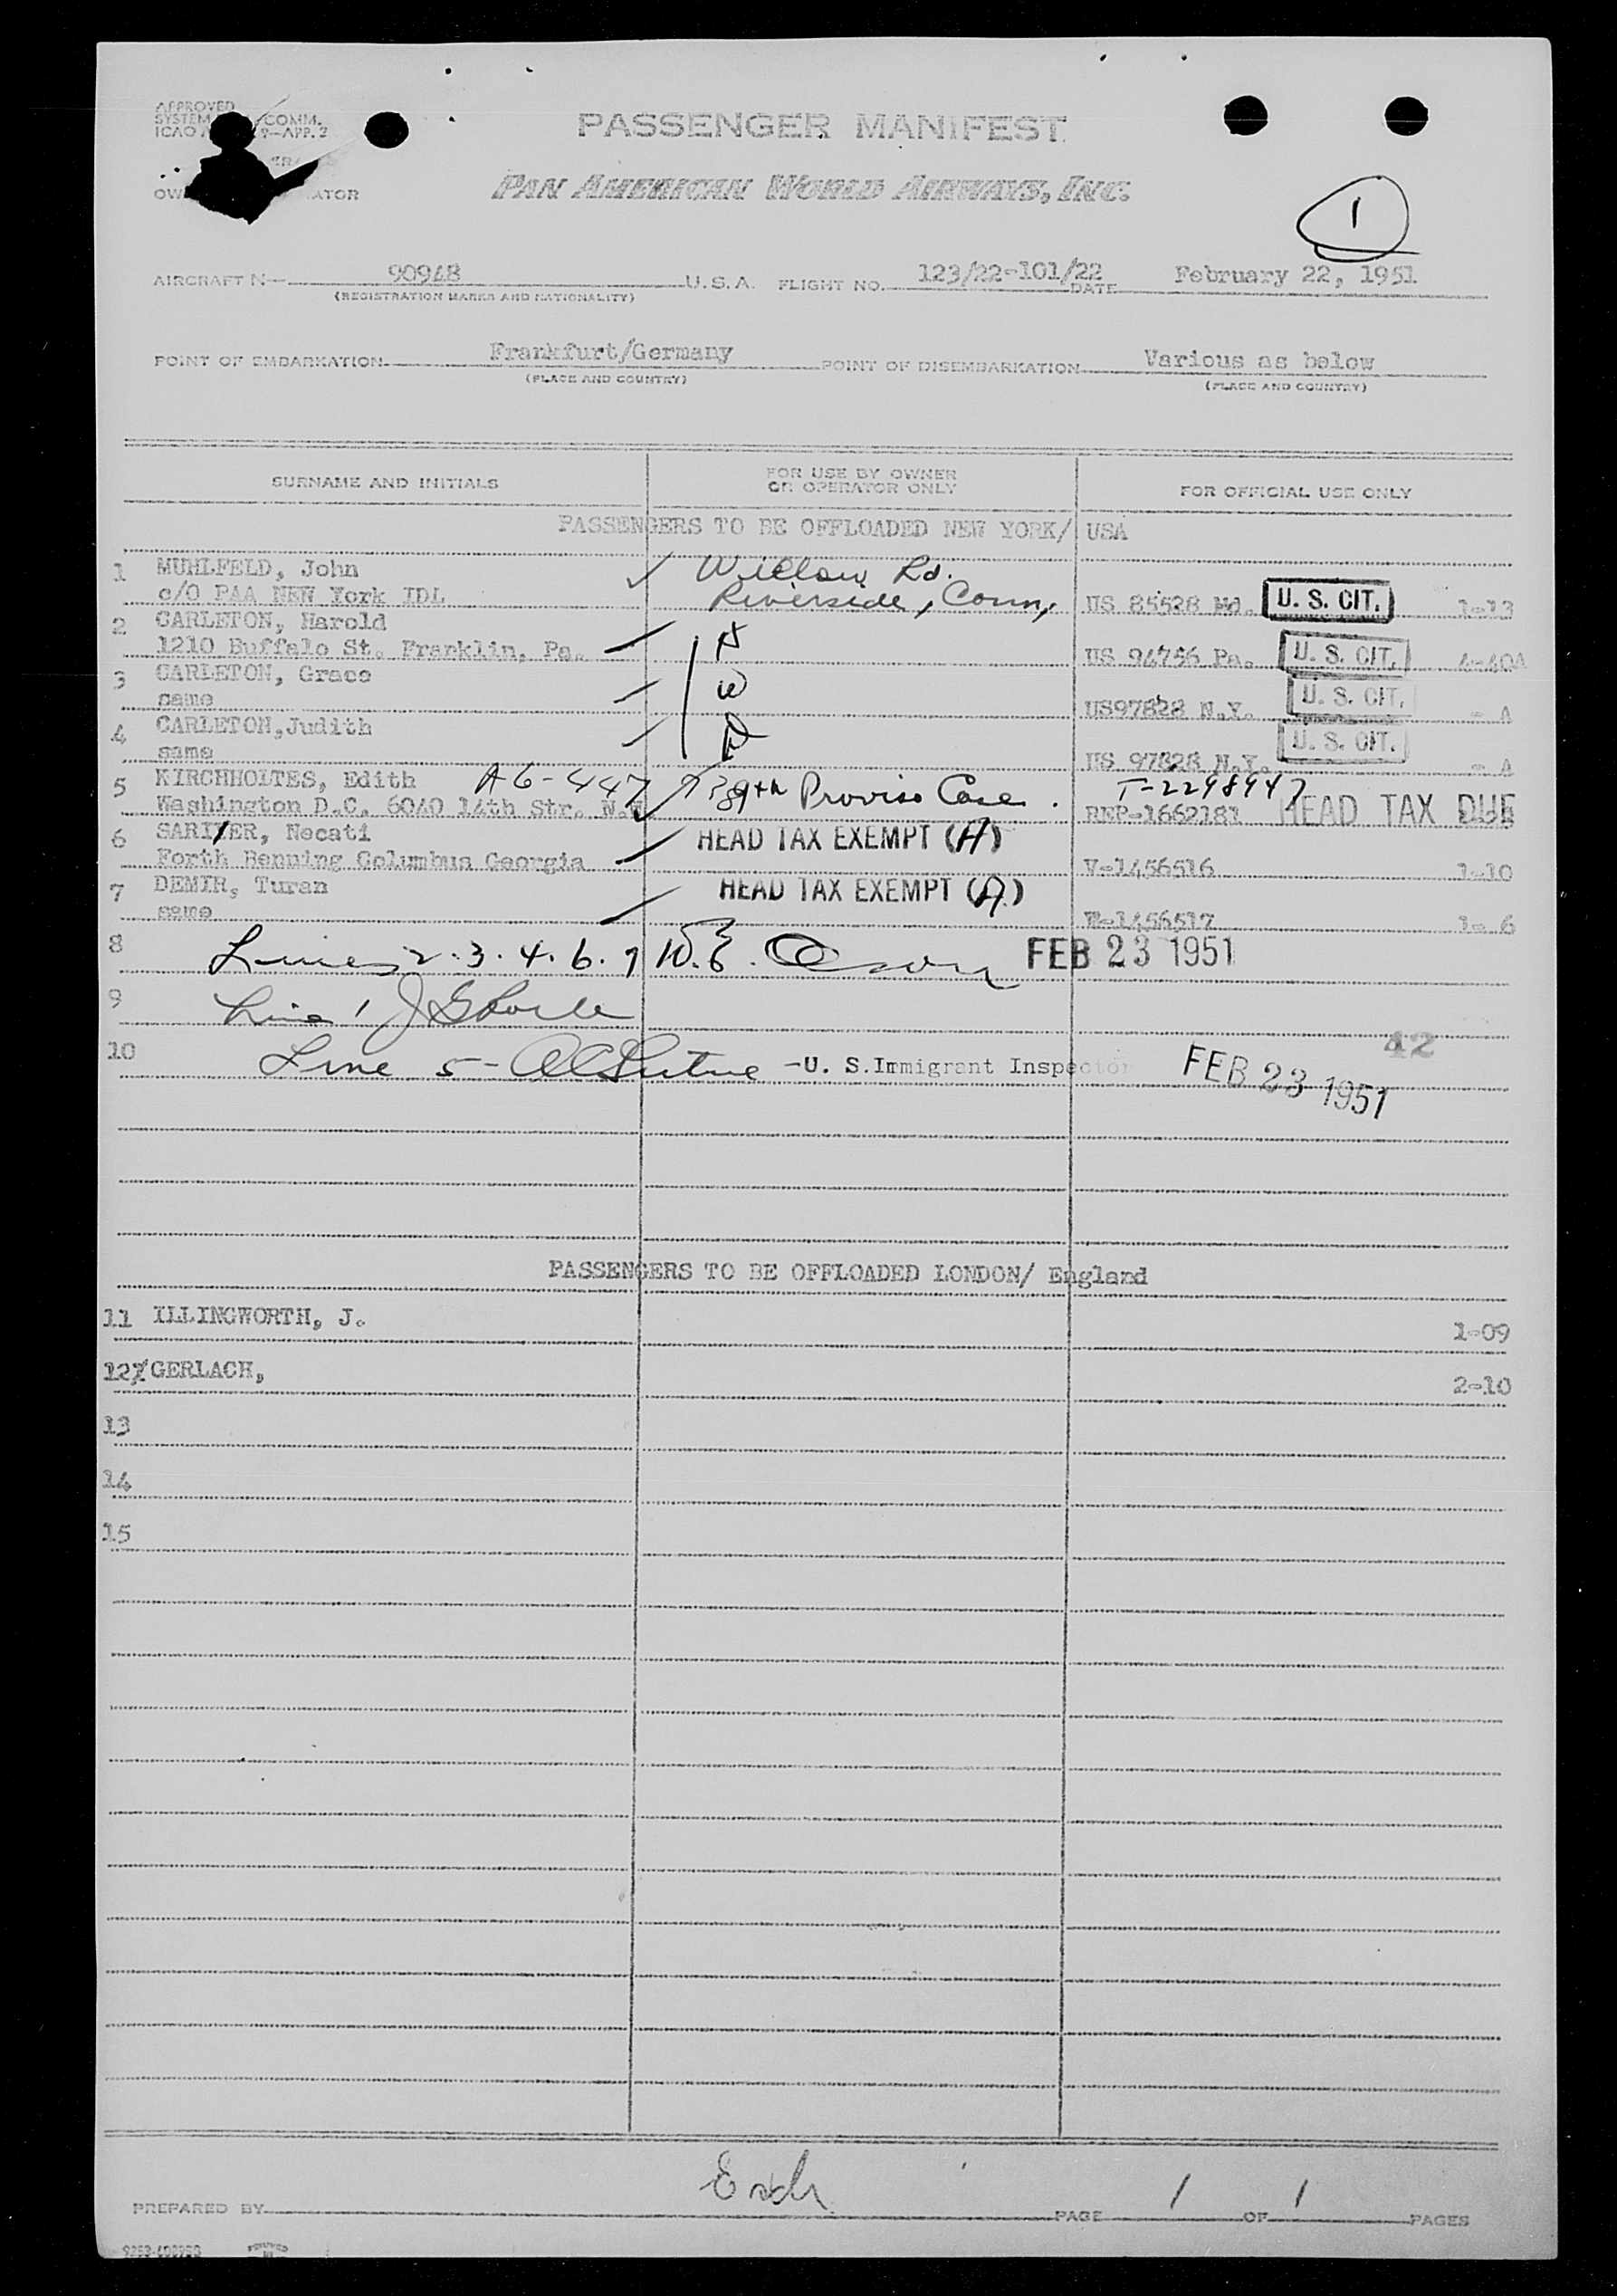 APPROVED
SYSTEM COMM.
ICAO 9-APP. 2
PASSENGER MANIFEST
PAN AMERICAN WORLD AIRWAYS, INC.
1
AIRCRAFT N- 90948 U.S.A. FLIGHT NO. 123/22-101/22 DATE February 22, 1951
(REGISTRATION MARKS AND NATIONALITY)
POINT OF EMBARKATION Frankfurt/Germany POINT OF DISEMBARKATION Various as below
(PLACE AND COUNTRY) (PLACE AND COUNTRY)
SURNAME AND INITIALS FOR USE BY OWNER OR OPERATOR ONLY FOR OFFICIAL USE ONLY
PASSENGERS TO BE OFFLOADED NEW YORK/ USA
1 MUHLFELD, John Willow Rd.
c/O PAA NEW York IDL Riverside, Conn, US 85528 Md. U. S. CIT. 1-13
2 CARLETON, Harold H
1210 Buffalo St. Franklin, Pa. US 94756 Pa. U. S. CIT. 4-40A
3 CARLETON, Grace W
same US97828 N.Y. U. S. CIT. - A
4 CARLETON,Judith D
same US 97828 N.Y. U. S. CIT. - A
5 KIRCHHOLTES, Edith A6-447 9th Proviso Case. T-2298947
Washington D.C. 6040 14th Str. N.W. REP-1662181 HEAD TAX DUE
6 SARIYER, Necati HEAD TAX EXEMPT (A)
Forth Benning Columbus Georgia V-1456516 1-10
7 DEMIR, Turan HEAD TAX EXEMPT (A)
same V-1456517 1- 6
8 Lines 2.3.4.6.7 W.E. Olson FEB 23 1951
9 Line 1
10 Line 5- -U. S. Immigrant Inspector FEB 23 1951 42
PASSENGERS TO BE OFFLOADED LONDON/ England
11 ILLINGWORTH, J. 1-09
12 GERLACH, 2-10
13
14
15
PREPARED BY PAGE 1 OF 1 PAGES